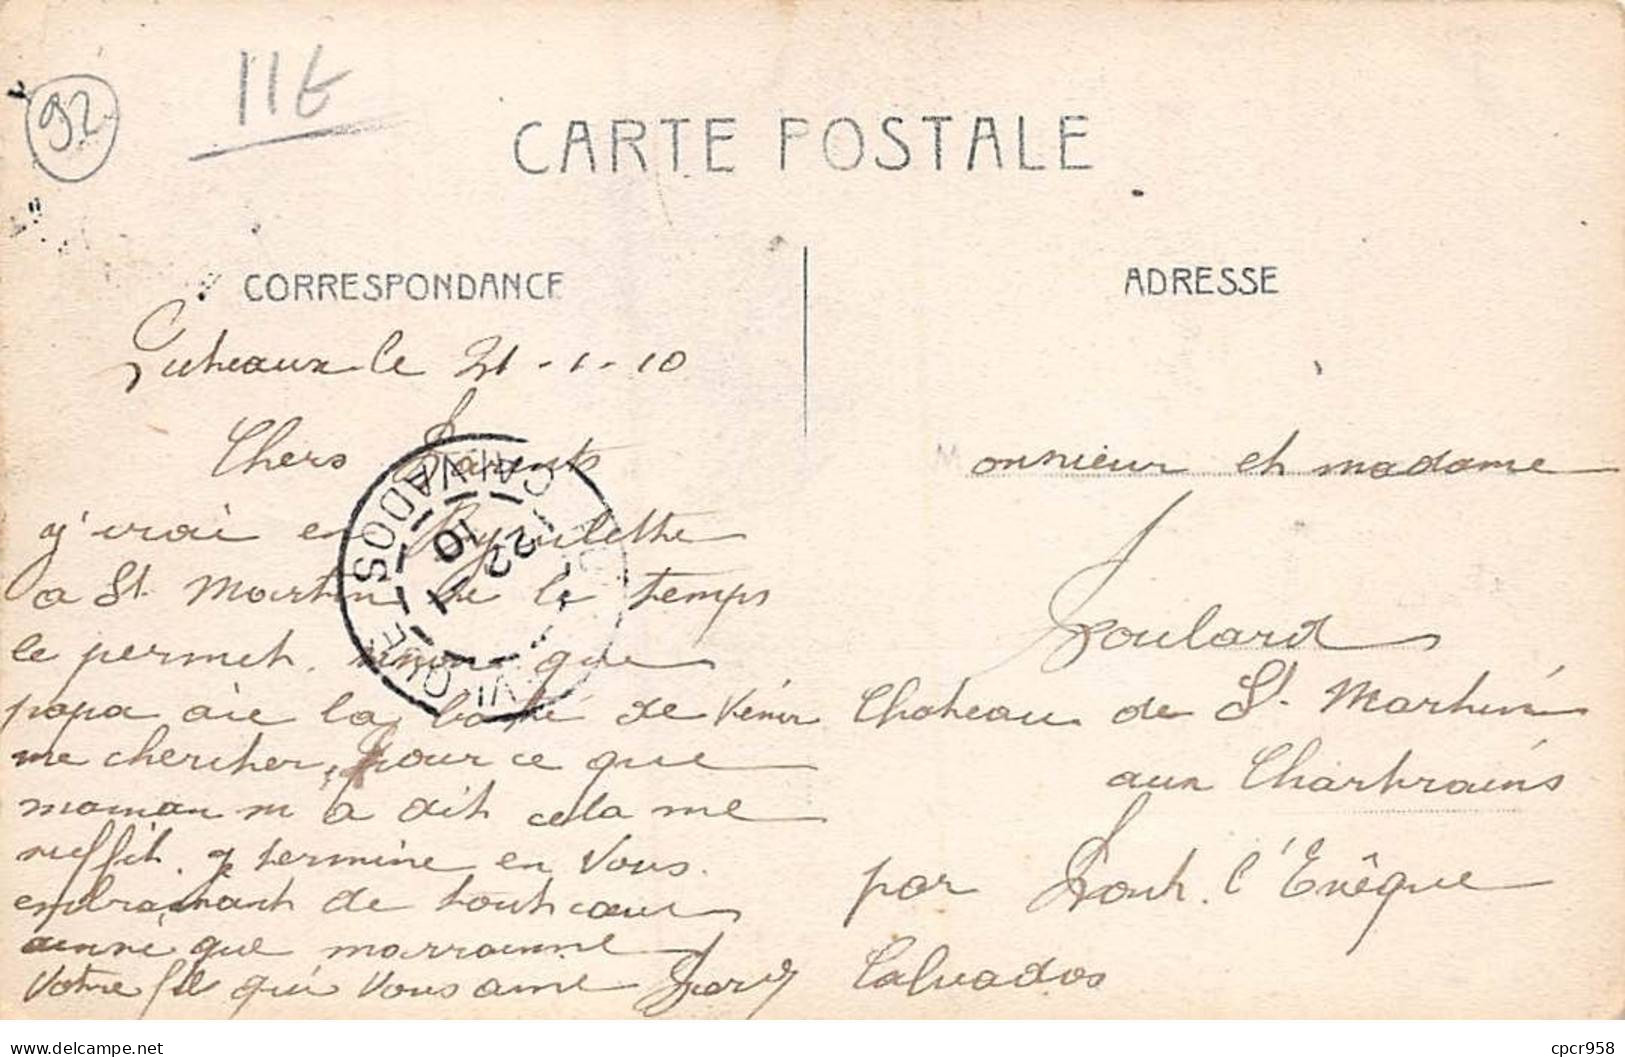 92
11E
CARTE POSTALE
CORRESPONDANCE
ADRESSE
Puteaux le 21-1-10
Chers Parents
j'irai en
a St. Martin le temps
le permet. que
papa aie la bonté de venir
me chercher, pour ce que
maman m'a dit cela me
suffit. je termine en vous
embrassant de tout cœur
ainsi que marrainne
Votre fil qui vous aime
Monsieur et madame
Poulard
Chateau de St. Martin
aux Chartrains
par Pont. l'Evêque
Calvados
PONT-L'EVEQUE CALVADOS
22 -1
10
delcampe.net
cpcr958